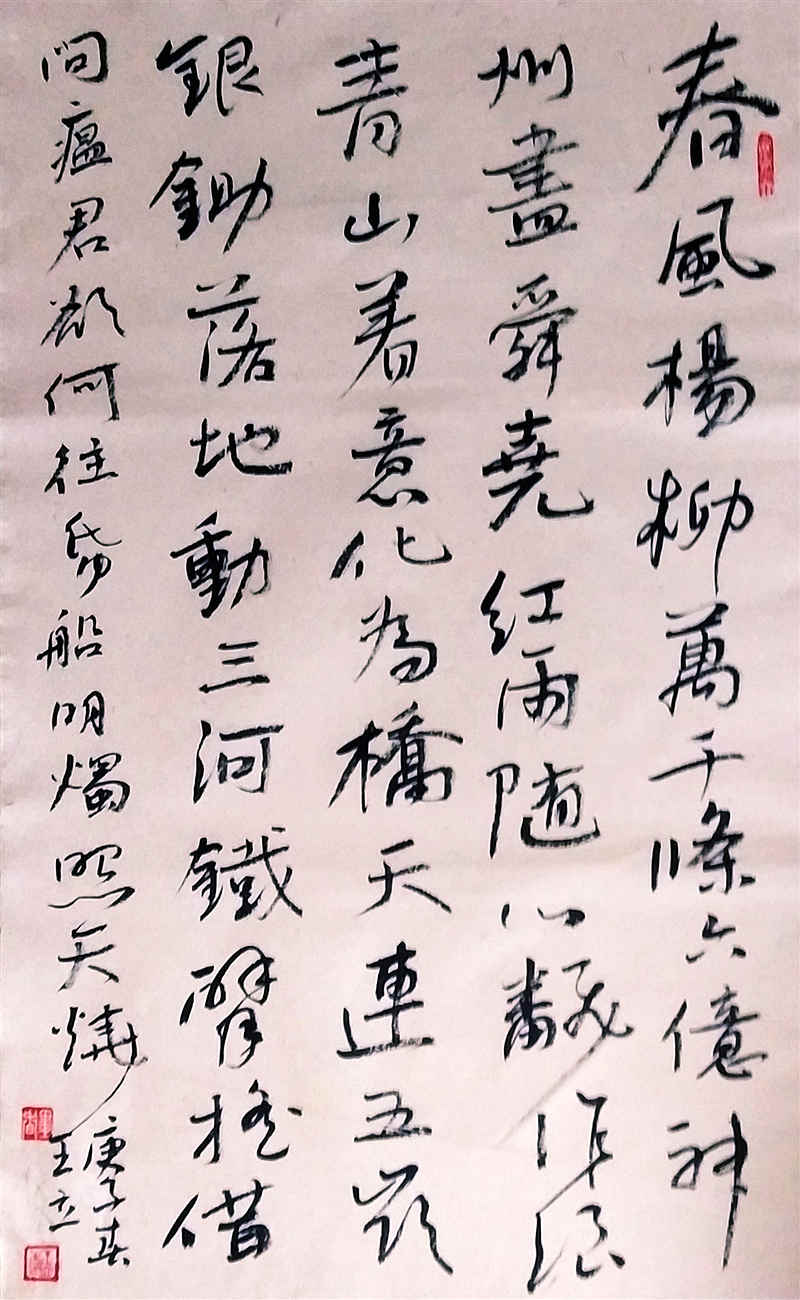 春風楊柳萬千條六億神
州盡舜堯紅雨随心翻作浪
青山着意化為橋天連五嶺
銀鋤落地動三河鐵臂摇借
問瘟君欲何往帋船明燭照天燒
庚子春
王立